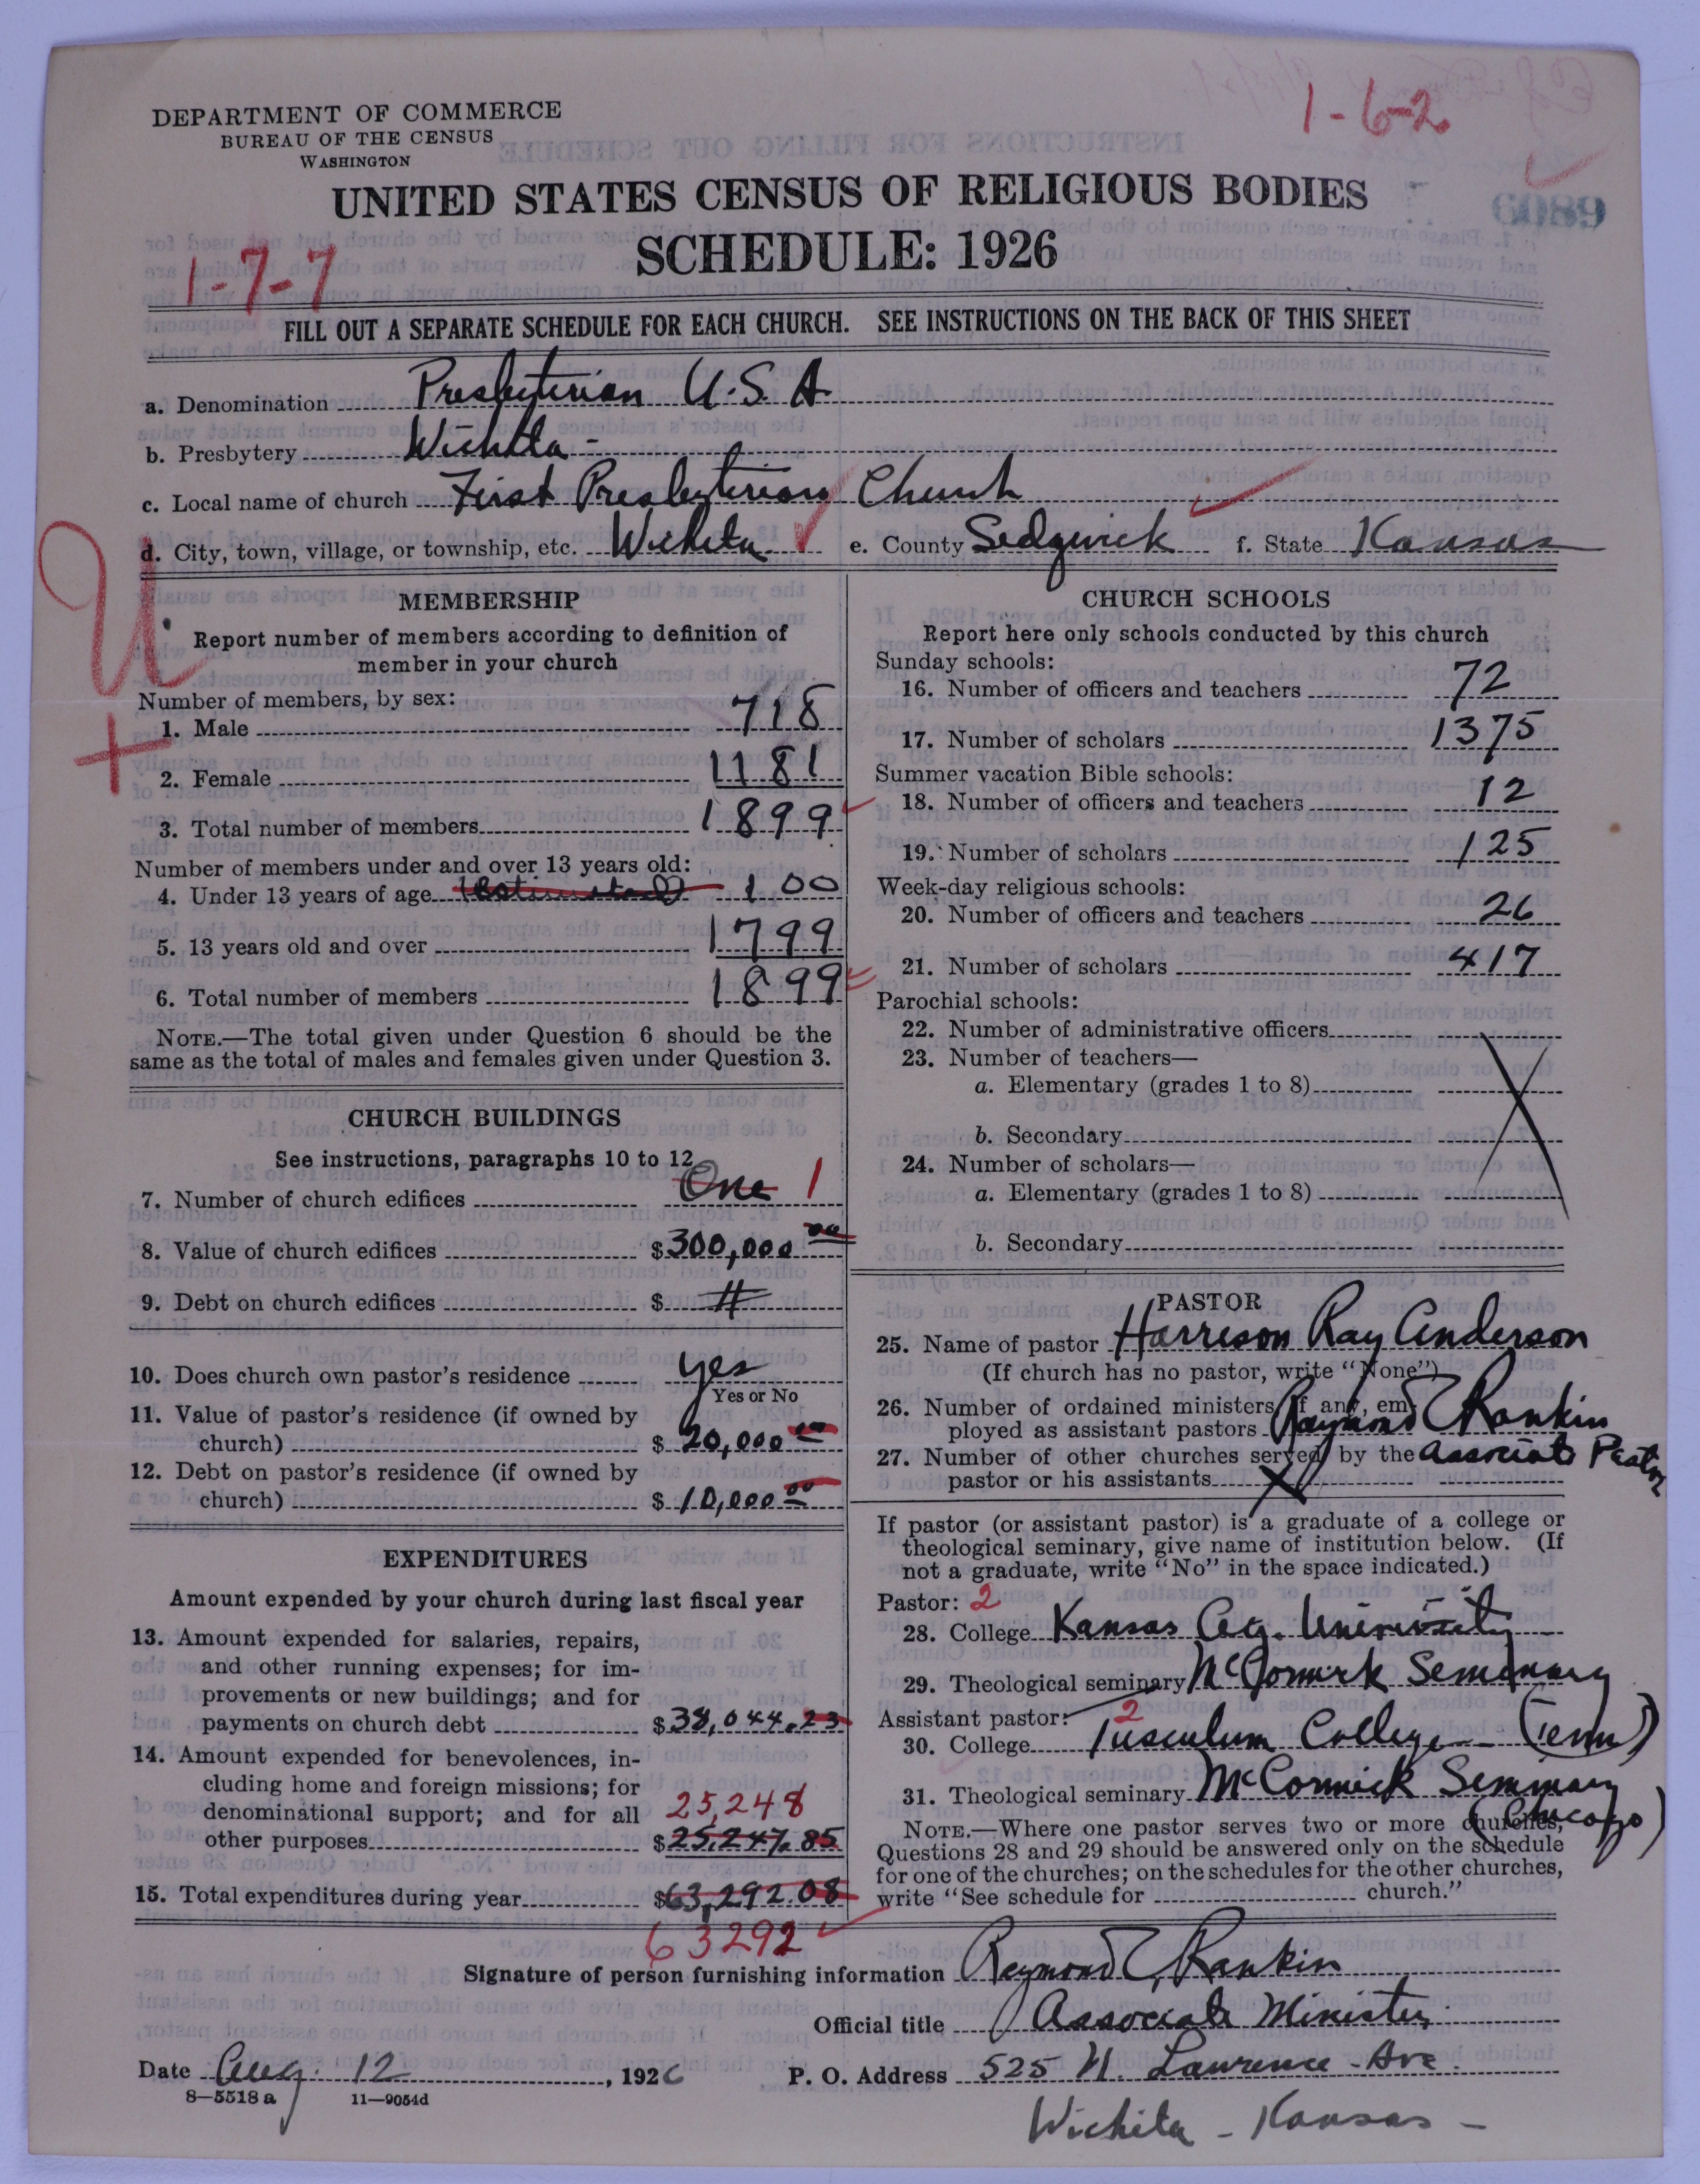 1-6-2
DEPARTMENT OF COMMERCE
BUREAU OF THE CENSUS
WASHINGTON
6089
UNITED STATES CENSUS OF RELIGIOUS BODIES
SCHEDULE: 1926
1-7-7
FILL OUT A SEPARATE SCHEDULE FOR EACH CHURCH. SEE INSTRUCTIONS ON THE BACK OF THIS SHEET
a. Denomination Presbyterian U.S.A
b. Presbytery Wichita -
c. Local name of church First Presbyterian Church
d. City, town, village, or township, etc. Wichita e. County Sedgwick f. State Kansas
MEMBERSHIP
Report number of members according to definition of
member in your church
Number of members, by sex:
1. Male 718
2. Female 1181
3. Total number of members 1899
Number of members under and over 13 years old:
4. Under 13 years of age (Estimated) 100
5. 13 years old and over 1799
6. Total number of members 1899
NOTE.—The total given under Question 6 should be the
same as the total of males and females given under Question 3.
CHURCH BUILDINGS
See instructions, paragraphs 10 to 12
7. Number of church edifices One 1
8. Value of church edifices $300,000 00
9. Debt on church edifices $
10. Does church own pastor's residence yes
Yes or No
11. Value of pastor's residence (if owned by
church) $ 20,000 00
12. Debt on pastor's residence (if owned by
church) $ 10,000 00
EXPENDITURES
Amount expended by your church during last fiscal year
13. Amount expended for salaries, repairs,
and other running expenses; for im-
provements or new buildings; and for
payments on church debt $38,044.23
14. Amount expended for benevolences, in-
cluding home and foreign missions; for
denominational support; and for all 25,248
other purposes $25,247.85
15. Total expenditures during year $63,292.08
63292
CHURCH SCHOOLS
Report here only schools conducted by this church
Sunday schools:
16. Number of officers and teachers 72
17. Number of scholars 1375
Summer vacation Bible schools:
18. Number of officers and teachers 12
19. Number of scholars 125
Week-day religious schools:
20. Number of officers and teachers 26
21. Number of scholars 417
Parochial schools:
22. Number of administrative officers
23. Number of teachers—
a. Elementary (grades 1 to 8)
b. Secondary
24. Number of scholars—
a. Elementary (grades 1 to 8)
b. Secondary
PASTOR
25. Name of pastor Harrison Ray Anderson
(If church has no pastor, write "None")
26. Number of ordained ministers, if any, em-
ployed as assistant pastors Raymond E Rankin
27. Number of other churches served by the Associate Pastor
pastor or his assistants X
If pastor (or assistant pastor) is a graduate of a college or
theological seminary, give name of institution below. (If
not a graduate, write "No" in the space indicated.)
Pastor: 2
28. College Kansas Ag. University
29. Theological seminary McCormick Seminary
Assistant pastor: 2
30. College Tusculum College (Tenn)
31. Theological seminary McCormick Seminary
(Chicago)
NOTE.—Where one pastor serves two or more churches,
Questions 28 and 29 should be answered only on the schedule
for one of the churches; on the schedules for the other churches,
write "See schedule for church."
Signature of person furnishing information Raymond E. Rankin
Official title Associate Minister
Date Aug. 12, 1926 P. O. Address 525 N. Lawrence Ave.
8—5518a 11—9054d
Wichita - Kansas -